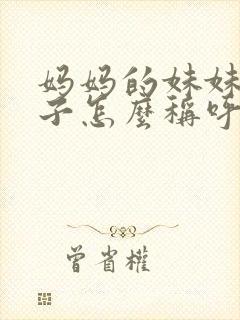 妈妈的妹妹
子怎麼稱呼
曾省權